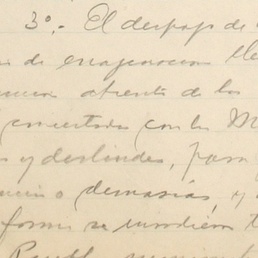 3º.- El despojo de
de enagenacion lle
atrento de los
concertados con las M
y deslindes, para
o demasías, y
forma se invadieron t